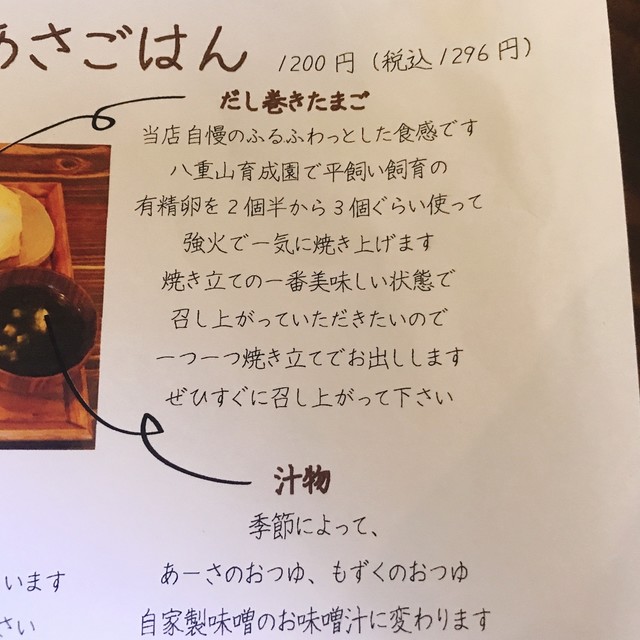 あさごはん 1200円（税込1296円）
だし巻きたまご
当店自慢のふるふわっとした食感です
八重山育成園で平飼い飼育の
有精卵を2個半から3個ぐらい使って
強火で一気に焼き上げます
焼き立ての一番美味しい状態で
召し上がっていただきたいので
一つ一つ焼き立てでお出しします
ぜひすぐに召し上がって下さい
汁物
季節によって、
あーさのおつゆ、もずくのおつゆ
自家製味噌のお味噌汁に変わります
います
さい